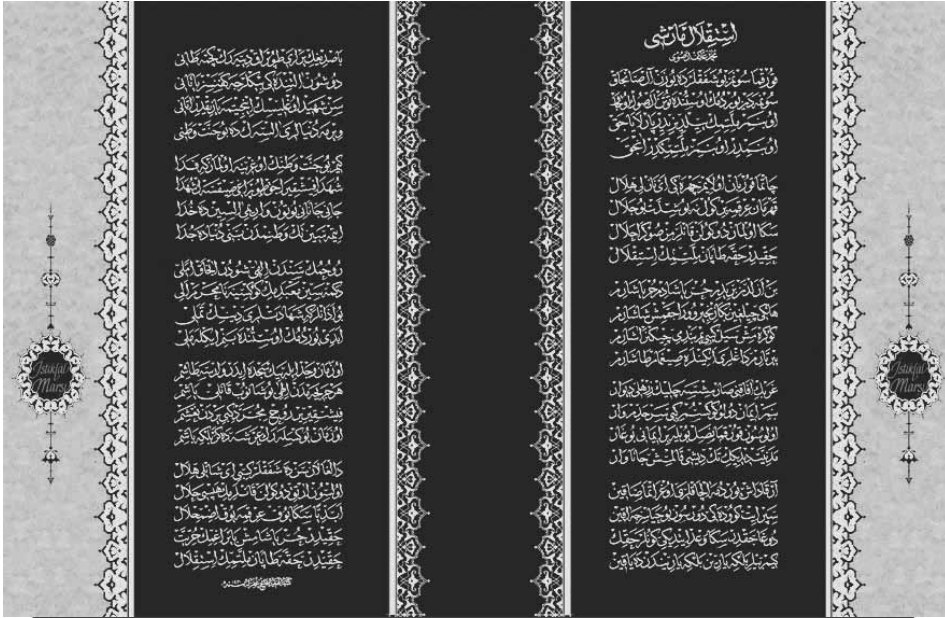 استقلال مارشی
محمد عاكف ارصوی
قورقما سونمز بو شفقلرده یوزن آل صانجاق
سونمه‌دن یوردمك اوستنده توتن اك صوك اوجاق
او بنم ملتمك ییلدیزیدر پارلایاجق
او بنمدر او بنم ملتمكدر آنجق
چاتما قوربان اولایم چهره‌كی ای نازلی هلال
قهرمان عرقمه بر كول نه بو شدت بو جلال
سكا اولماز دوكولن قانلریمز صوكرا حلال
حقیدر حقه طاپان ملتمك استقلال
بن ازلدن بریدر حر یاشادم حر یاشارم
هانكی چیلغین بكا زنجیر ووراجقمش شاشارم
كوكره‌مش سیل كبی‌یم بندیمی چیكنر آشارم
ییرتارم طاغلری انكینلره صیغمام طاشارم
غربك آفاقنی صارمشسه چلیك زرهلی دیوار
بنم ایمان دولو كوكسم كبی سرحدم وار
اولوسون قورقما ناصل بویله بر ایمانی بوغار
مدنیت دیدیكك تك دیشی قالمش جاناوار
آرقاداش یوردمه آلچاقلری اوغراتما صاقین
سپر ایت كووده‌كی دورسون بو حیاسزجه آقین
دوغاجقدر سكا وعد ایتدیكی كونلر حقك
كیم بیلیر بلكه یارین بلكه یاریندن ده یاقین
باصدیغك یرلری طوپراق دییه‌رك كچمه طانی
دوشون آلتنده‌كی بیكلرجه كفنسز یاتانی
سن شهید اوغلیسك اینجیتمه یازیقدر آتاكی
ویرمه دنیالری آلسه‌ك ده بو جنت وطنی
كیم بو جنت وطنك اوغرینه اولماز كه فدا
شهدا فیشقیراجق طوپراغی صیقسه‌ك شهدا
جانی جانانی بوتون واریمی آلسین ده خدا
ایتمه‌سین تك وطنمدن بنی دنیاده جدا
روحمك سندن الهی شودر آنجاق املی
دكمه‌سین معبدمك كوكسنه نامحرم الی
بو اذانلر كه شهادتلری دینك تملی
ابدی یوردمك اوستنده بنم ایكله‌ملی
او زمان وجد ایله بیك سجده ایدر وارسه طاشم
هر جریحه‌مدن الهی بوشانوب قانلی یاشم
فیشقیریر روح مجرد كبی یردن نعشم
او زمان یوكسله‌رك عرشه دكر بلكه باشم
دالغالان سن ده شفقلر كبی ای شانلی هلال
اولسون آرتق دوكولن قانلریمك هپسی حلال
ابدیا سكا یوق عرقمه یوق اضمحلال
حقیدر حر یاشامش بایراغمك حریت
حقیدر حقه طاپان ملتمك استقلال
İstiklal Marşı
İstiklal Marşı